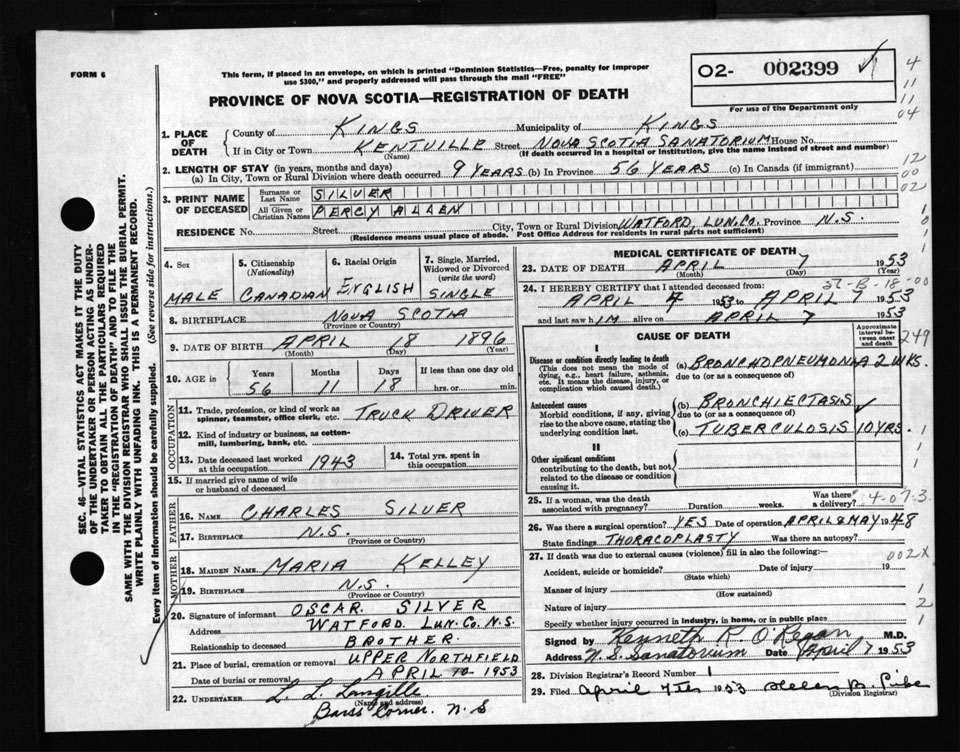 FORM 6
This form, if placed in an envelope, on which is printed "Dominion Statistics—Free, penalty for improper
use $300," and properly addressed will pass through the mail "FREE"
PROVINCE OF NOVA SCOTIA—REGISTRATION OF DEATH
O2- 002399
For use of the Department only
4
11
11
04
1. PLACE OF DEATH
County of KINGS Municipality of KINGS
If in City or Town KENTVILLE Street NOVA SCOTIA SANATORIUM House No.
(Name) (If death occurred in a hospital or institution, give the name instead of street and number)
2. LENGTH OF STAY (in years, months and days)
(a) In City, Town or Rural Division where death occurred 9 YEARS (b) In Province 56 YEARS (c) In Canada (if immigrant)
12
00
02
3. PRINT NAME OF DECEASED
Surname or Last Name SILVER
All Given or Christian Names PERCY ALLEN
RESIDENCE No. Street City, Town or Rural Division WATFORD, LUN.CO. Province N.S.
(Residence means usual place of abode. Post Office Address for residents in rural parts not sufficient)
4. Sex MALE
5. Citizenship (Nationality) CANADIAN
6. Racial Origin ENGLISH
7. Single, Married, Widowed or Divorced (write the word) SINGLE
8. BIRTHPLACE NOVA SCOTIA
(Province or Country)
9. DATE OF BIRTH APRIL 18 1896
(Month) (Day) (Year)
10. AGE in Years Months Days If less than one day old
56 11 18 hrs. or min.
OCCUPATION
11. Trade, profession, or kind of work as TRUCK DRIVER
spinner, teamster, office clerk, etc.
12. Kind of industry or business, as cotton-
mill, lumbering, bank, etc.
13. Date deceased last worked at this occupation 1943
14. Total yrs. spent in this occupation
15. If married give name of wife or husband of deceased
FATHER
16. Name CHARLES SILVER
17. Birthplace N.S.
(Province or Country)
MOTHER
18. Maiden Name MARIA KELLEY
19. Birthplace N.S.
(Province or Country)
20. Signature of informant OSCAR SILVER
Address WATFORD LUN. CO. N.S.
Relationship to deceased BROTHER.
21. Place of burial, cremation or removal UPPER NORTHFIELD
Date of burial or removal APRIL 10 1953
22. UNDERTAKER L. L. Langille
(Name and address)
Barss Corner. N.S
MEDICAL CERTIFICATE OF DEATH
23. DATE OF DEATH APRIL 7 1953
(Month) (Day) (Year)
24. I HEREBY CERTIFY that I attended deceased from:
APRIL 7 1953 to APRIL 7 1953
and last saw him alive on APRIL 7 1953
CAUSE OF DEATH
Approximate interval between onset and death
249
I
Disease or condition directly leading to death
(This does not mean the mode of
dying, e.g., heart failure, asthenia,
etc. It means the disease, injury, or
complication which caused death.)
(a) BRONCHOPNEUMONIA 2 WKS.
due to (or as a consequence of)
Antecedent causes
Morbid conditions, if any, giving
rise to the above cause, stating the
underlying condition last.
(b) BRONCHIECTASIS
due to (or as a consequence of)
(c) TUBERCULOSIS 10 YRS.
II
Other significant conditions
contributing to the death, but not
related to the disease or condition
causing it.
25. If a woman, was the death associated with pregnancy? Duration weeks. Was there a delivery?
4-07-3
26. Was there a surgical operation? YES Date of operation APRIL & MAY 1948
State findings THORACOPLASTY Was there an autopsy?
27. If death was due to external causes (violence) fill in also the following:—
002X
Accident, suicide or homicide? Date of injury 19
(State which)
Manner of injury
(How sustained)
Nature of injury
Specify whether injury occurred in industry, in home, or in public place
Signed by Kenneth K O'Regan M.D.
Address N.S. Sanatorium Date April 7 1953
28. Division Registrar's Record Number 1
29. Filed April 7th 1953
(Division Registrar)
SEC. 46—VITAL STATISTICS ACT MAKES IT THE DUTY
OF THE UNDERTAKER OR PERSON ACTING AS UNDER-
TAKER TO OBTAIN ALL THE PARTICULARS REQUIRED
IN THE "REGISTRATION OF DEATH" AND TO FILE THE
SAME WITH THE DIVISION REGISTRAR WHO SHALL ISSUE THE BURIAL PERMIT.
WRITE PLAINLY WITH UNFADING INK. THIS IS A PERMANENT RECORD.
Every item of Information should be carefully supplied. (See reverse side for instructions.)